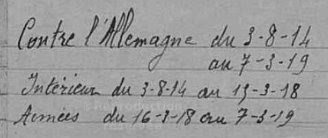 Contre l'Allemagne du 3-8-14
au 7-3-19
Intérieur du 3-8-14 au 15-3-18
Armées du 16-3-18 au 7-3-19